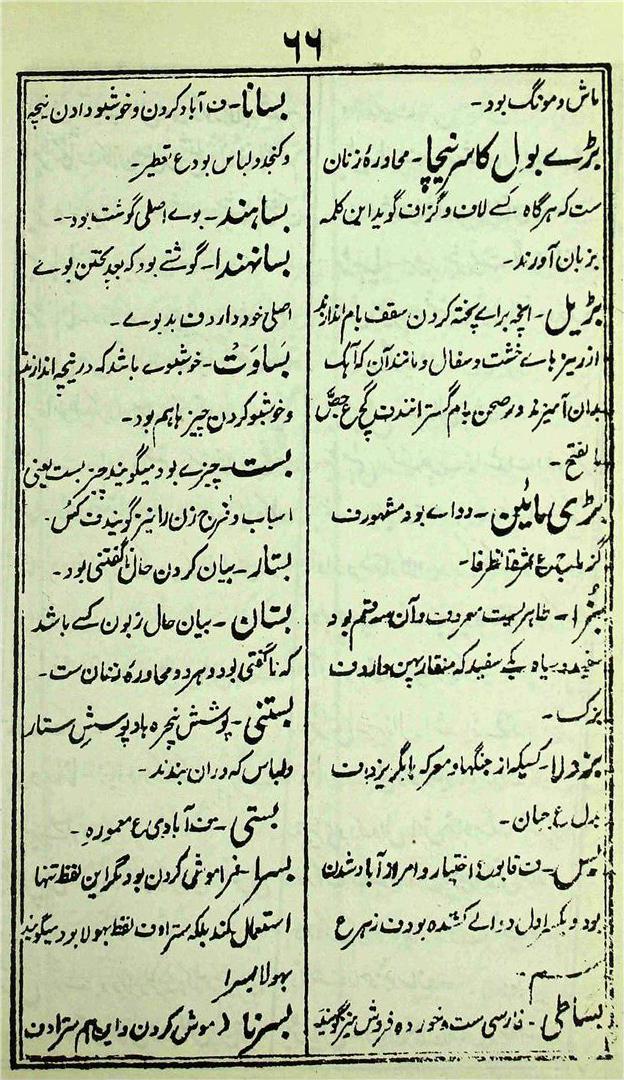 ۶۶
ماش و مونگ بود۔
بڑے بول کا سر نیچا۔ محاورۂ زنان
ست کہ ہر گاہ کسے لاف و گزاف گوید این کلمہ
بزبان آورند۔
بڑیل۔ انچہ براے پختہ کردن سقف بام اندازند
از ریز ہاے خشت و سفال و مانند آن کہ آہک
بدان آمیزند و در صحن بام گسترانند ف گچ ع جص
بالفتح۔
بڑی مائین۔ دواے بود مشہور ف
گز ع ثمرة الطرفا۔
بزا۔ طایریست معروف و آن سہ قسم بود
سفید و سیاہ یکے سفید کہ منقار پہن دارد ف
بزک۔
بزدلا۔ کسیکہ از جنگہا و معرکہ ہا بگریزد ف
بدل ع جبان۔
بس۔ ف قابو ع اختیار و امر از آباد شدن
بود و بکسر اول دواے کشندہ بود ف زہر ع
سم۔
بساطی۔ فارسی ست و خوردہ فروش نیز گویند
بسانا۔ ف آباد کردن و خوشبو دادن نیچہ
و کنجد و لباس بود ع تعطیر۔
بساہند۔ بوے اصلی گوشت بود۔
بسانہندا۔ گوشتے بود کہ بعد پختن بوے
اصلی خود دارد ف بدبوے۔
بساوٹ۔ خوشبوے باشد کہ در نیچہ اندازند
و خوشبو کردن چیز ہا ہم بود۔
بست۔ چیزے بود میگویند چیز بست یعنی
اسباب و فرج زن را نیز گویند ف کس۔
بستار۔ بیان کردن حال ناگفتنی بود۔
بستان۔ بیان حال زبون کسے باشد
کہ ناگفتنی بود و ہر دو محاورہ زنان ست۔
بستنی۔ پوشش پنجرہ ہا و پوشش ستار
و لباس کہ دران بندند۔
بستی۔ ف آبادی ع معمورہ۔
بسرا۔ فراموشی کردن بود مگر این لفظ تنہا
استعمال نکنند بلکہ مترادف لفظ بہولا بود میگویند
بہولا بسرا
بسرنا۔ فراموش کردن و این ہم مترادف